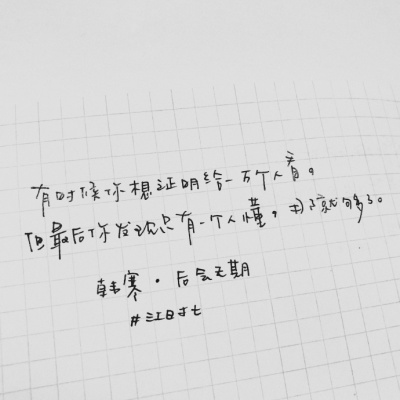 有时候你想证明给一万个人看。
但最后你发现只有一个人懂。那就够了。
韩寒·后会无期